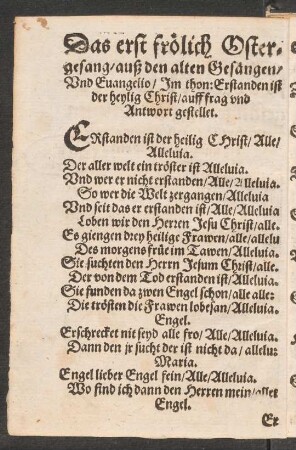 Das erst frölich Oster-
gesang/ auß den alten Gesängen/
Vnd Euangelio/ Im thon: Erstanden ist
der heylig Christ/ auff frag vnd
Antwort gestellet.
ERstanden ist der heilig CHrist/ Alle/
Alleluia.
Der aller welt ein tröster ist Alleluia.
Vnd wer er nicht erstanden/ Alle/ Alleluia.
So wer die Welt zergangen/ Alleluia
Vnd seit das er erstanden ist/ Alle/ Alleluia
Loben wir den Herren Jesu Christ/ alle.
Es giengen drey heilige Frawen/ alle/ allelu
Des morgens früe im Tawen/ Alleluia.
Sie suchten den Herrn Jesum Christ/ alle.
Der von dem Tod erstanden ist/ Alleluia.
Sie funden da zwen Engel schon/ alle alle:
Die trösten die Frawen lobesan/ Alleluia.
Engel.
Erschrecket nit seyd alle fro/ Alle/ Alleluia.
Dann den jr sucht der ist nicht da/ allelu:
Maria.
Engel lieber Engel fein/ Alle/ Alleluia.
Wo find ich dann den Herren mein/ alle:
Engel.
Er